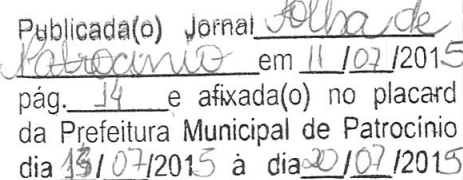 Publicada(o) Jornal Folha de
Patrocínio em 11/07/2015
pág. 14 e afixada(o) no placard
da Prefeitura Municipal de Patrocínio
dia 13/07/2015 à dia 20/07/2015